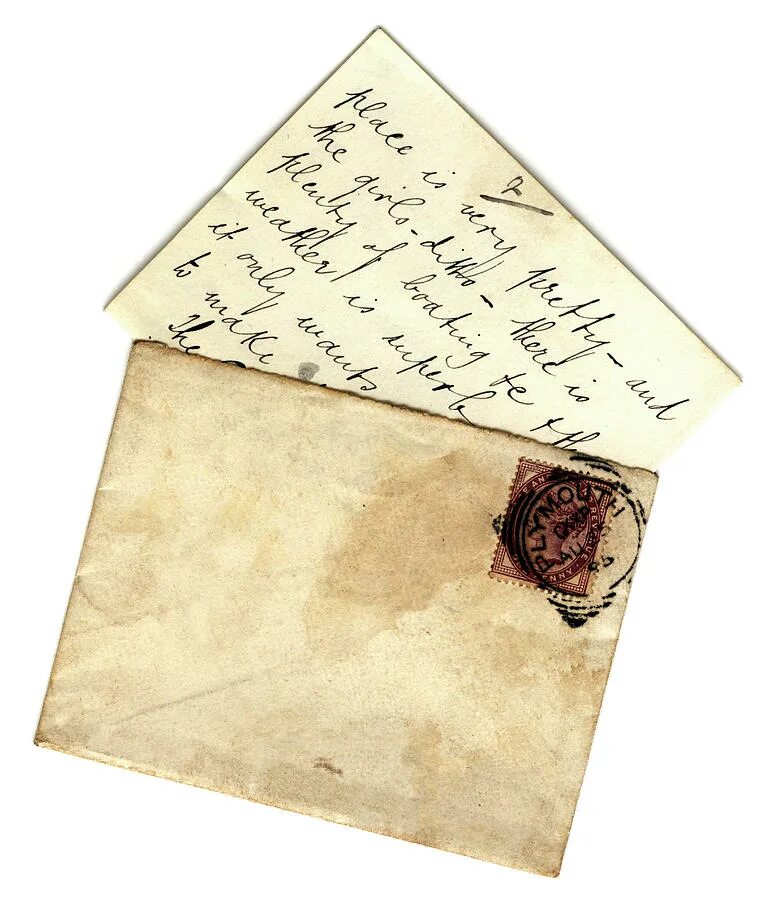 2
place is very pretty – and
the girls – ditto – there is
plenty of boating &c
weather is superb &
it only wants
to make
The
PLYMOUTH
AU
86